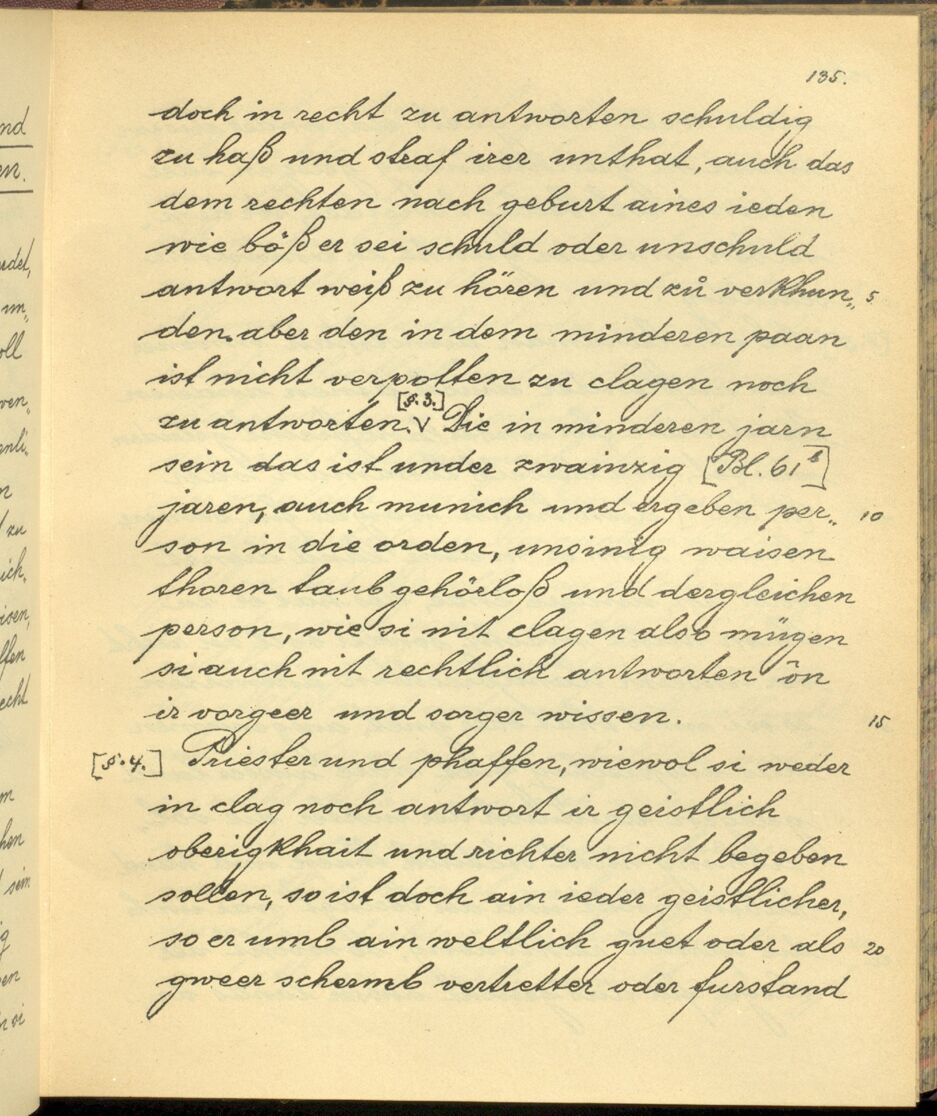 135.
doch in recht zu antworten schuldig
zu haß und straf irer unthat, auch das
dem rechten nach geburt aines ieden
wie böß er sei schuld oder unschuld
antwort weiß zu hören und zů verkhun„ 5
den. aber den in dem minderen paan
ist nicht verpotten zu clagen noch
[§. 3.]
zu antworten. V Die in minderen jarn
sein das ist under zwainzig [Bl. 61b]
jaren, auch munich und ergeben per„ 10
son in die orden, unsinig waisen
thoren taub gehörloß und dergleichen
person, wie si nit clagen also mügen
si auch nit rechtlich antworten ôn
ir vorgeer und sorger wissen. 15
[§. 4.] Priester und phaffen, wiewol si weder
in clag noch antwort ir geistlich
oberigkhait und richter nicht begeben
sollen, so ist doch ain ieder geistlicher,
so er umb ain weltlich guet oder als 20
gweer schermb vertretter oder furstand